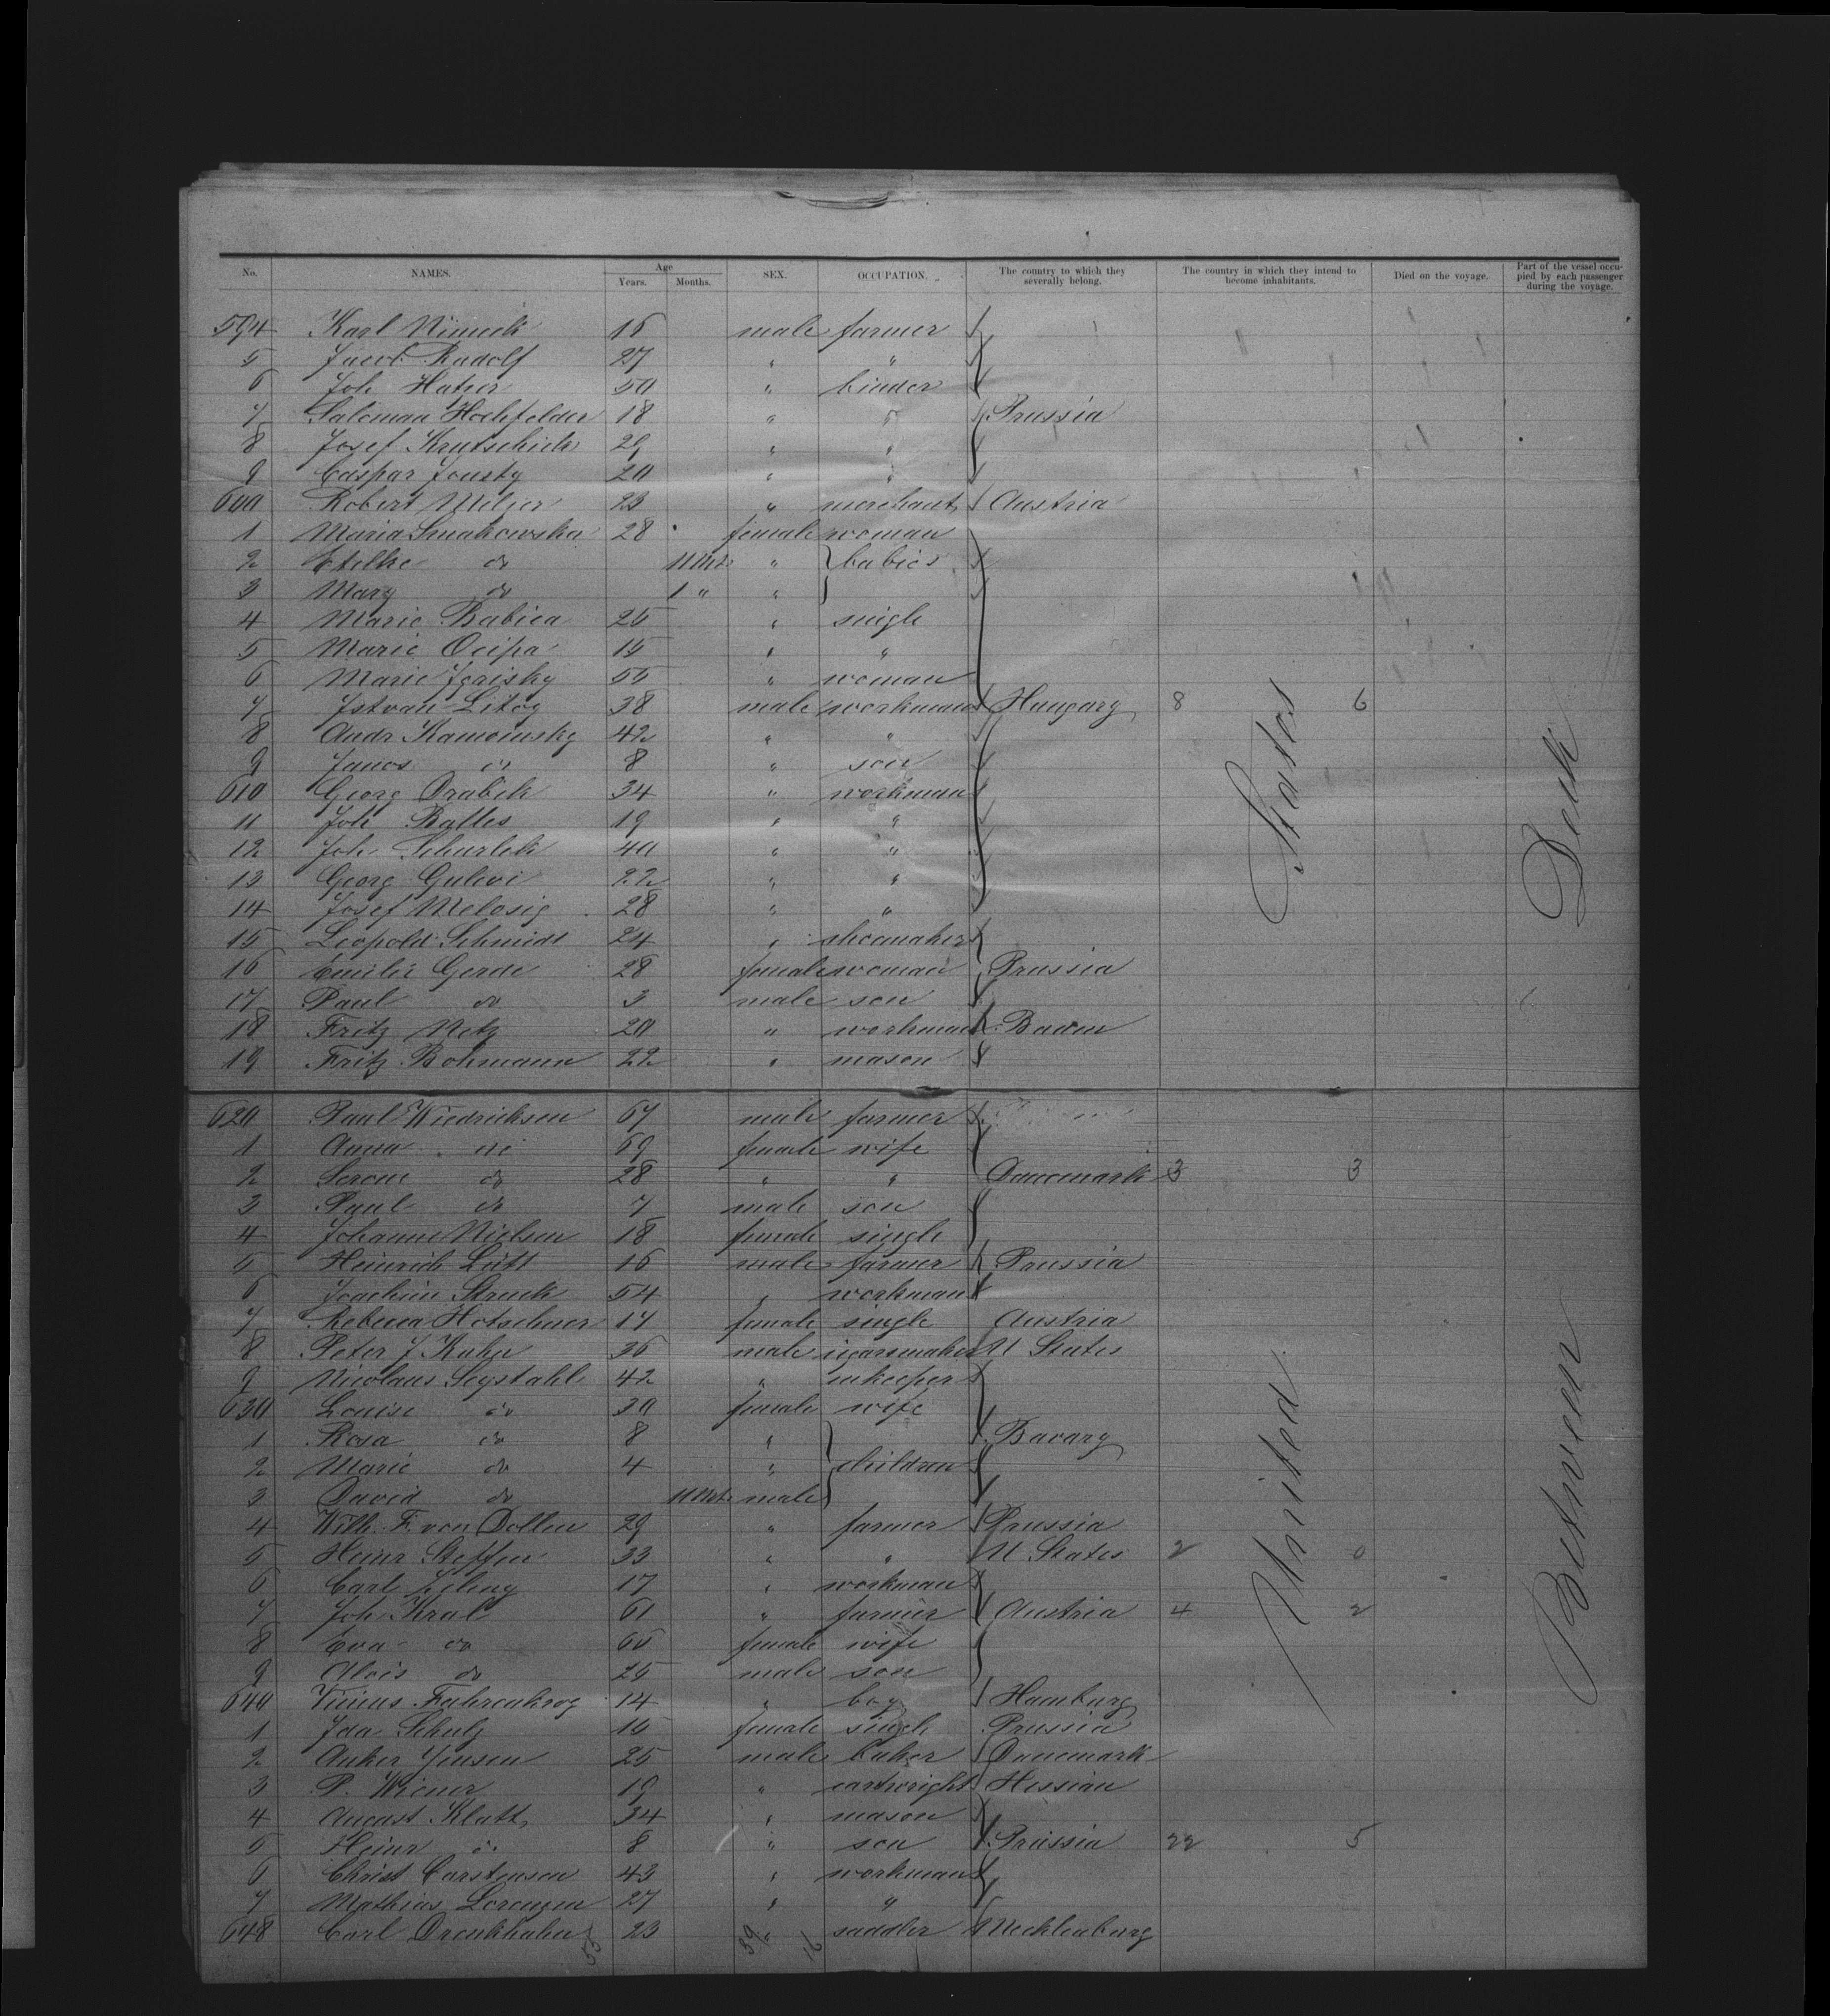 No. NAMES. Age Years. Months. SEX. OCCUPATION. The country to which they severally belong. The country in which they intend to become inhabitants. Died on the voyage. Part of the vessel occupied by each passenger during the voyage.
594 Karl 16 male farmer
5 Jacob Rudolf 27 " "
6 Joh Hatzer 50 " binder
7 Saloman Hochfelder 18 " " Prussia
8 Josef Krutschick 29 " "
9 Caspar Jousty 20 " "
600 Robert Milzer 23 " merchant Austria
1 Maria Smakowska 28 female woman
2 Etelke do 11 Mts " babies
3 Mary do 1 " "
4 Marie Babica 25 " single
5 Marie Ocipa 15 " "
6 Marie 55 " woman
7 Istvan Litog 38 male workman Hungary 8 6
8 Andr Kamoinsky 42 " "
9 Janos do 8 " son
610 Georg Drabik 34 " workman
11 Joh Balles 19 " "
12 Joh 40 " "
13 Georg Gulovi 22 " "
14 Josef Melosig 28 " "
15 Leopold Schmidt 24 " shoemaker
16 Emilie Gerde 28 female woman Prussia
17 Paul do 3 male son
18 Fritz Netz 20 " workman Baden
19 Fritz Bohmann 22 " mason
620 Paul Wiedricksen 67 male farmer
1 Anna do 69 female wife
2 Serene do 28 " " Danemark 3 3
3 Paul do 7 male son
4 Johanne Nielsen 18 female single
5 Heinrich Lütt 16 male farmer Prussia
6 Joachim Struck 54 " workman
7 Rebecca Hotschner 17 female single Austria
8 Peter J Kuhn 36 male cigarsmaker U States
9 Nicolaus Seystahl 42 " inkeeper
630 Louise do 30 female wife
1 Rosa do 8 " Bavary
2 Marie do 4 " children
3 David do 11 Mts male
4 Wilh. F. von Dollen 29 " farmer Prussia
5 Heinr Steffen 33 " " U States 2 0
6 Carl 17 " workman
7 Joh Kral 61 " farmer Austria 4 2
8 Eva do 65 female wife
9 Alois do 25 male son
640 Fahrenkrog 14 " boy Hamburg
1 Ida Schulz 15 female single Prussia
2 Anker Jensen 25 male baker Danemark
3 P. Wiener 19 " cartwright Hessian
4 August Klatt 34 " mason
5 Heinr do 8 " son Prussia 22 5
6 Christ Carstensen 43 " workman
7 Mathias Lorenzen 27 " "
648 Carl Drenkhahn 23 " saddler Mecklenburg
55 39 16
United States
Between Deck